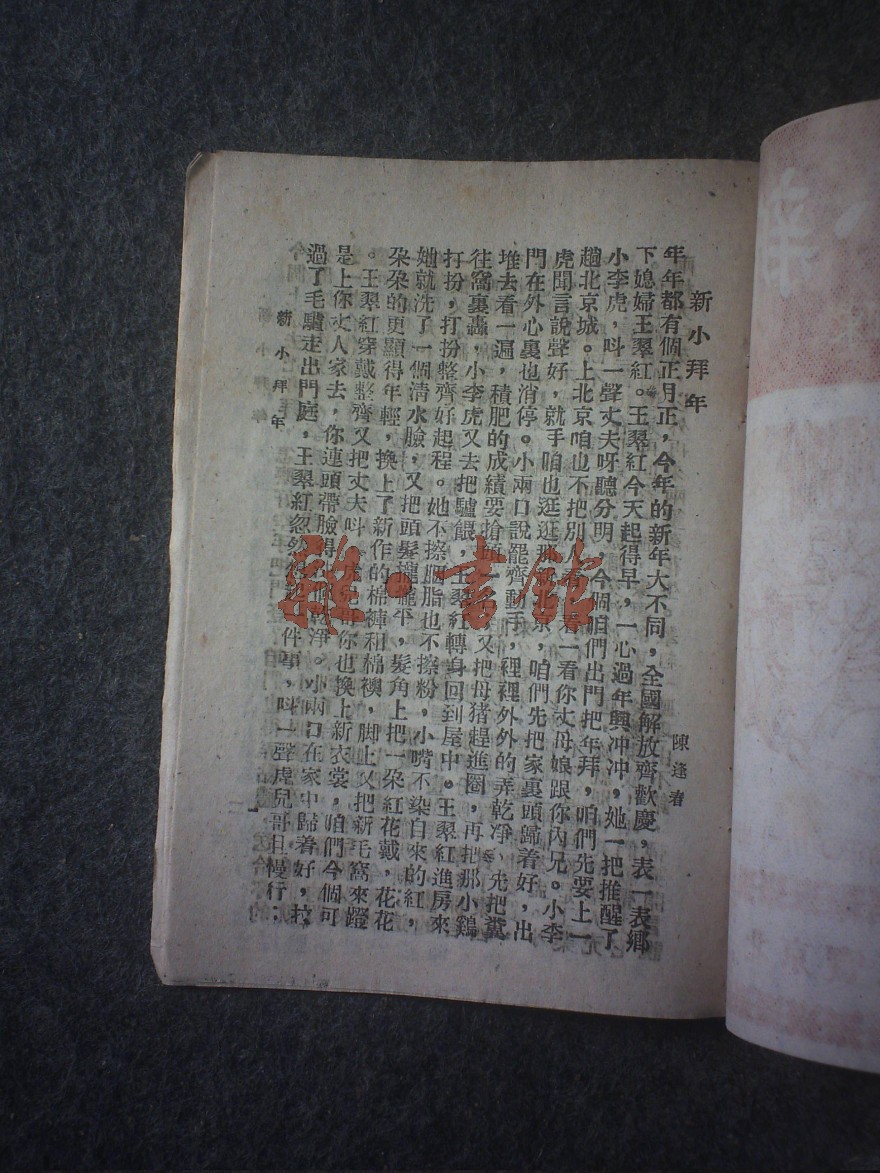 新小拜年
陳逢春
年年都有個正月正，今年的新年大不同，全國解放齊歡慶，表一表鄉
下媳婦王翠紅。王翠紅今天起得早，一心過年興冲冲，她一把推醒了
小李虎，呌一聲丈夫呀聽分明，今個咱們出門把年拜，咱們先要上一
趟北京城。上北京咱也不把別人看，看一看你丈母娘跟你內兄。小李
虎聞言說聲好，就手咱也逛逛那北京，咱們先把家裏頭歸着好，出
門在外心裏也消停。小兩口說罷齊動手，裡裡外外的弄乾净，先把糞
堆去看一遍，積肥的成績要搶頭名，又把母猪趕進圈，再把那小鷄
往窩裏轟，小李虎又去把驢餵，王翠紅轉身回到屋中。王翠紅進房來
打扮，打扮整齊好起程。她不擦胭脂也不擦粉，小嘴不染自來的紅，
她就洗了一個淸水臉，又把頭髮攏攏平，髮角上把一朶紅花戴，花花
朶朶的更顯得年輕，換上了新作的棉褲和棉襖，脚上又把新毛窩來蹬
。王翠紅穿戴整齊又把丈夫呌，虎兒哥你也換上新衣裳，咱們今個可
是上你丈人家去，你連頭帶臉得 個乾淨。小兩口在家中歸着好，拉
過了毛驢走出門庭，王翠紅忽然 一件事，呌一聲虎兒哥且慢行；
新小拜年
一
雜·書館